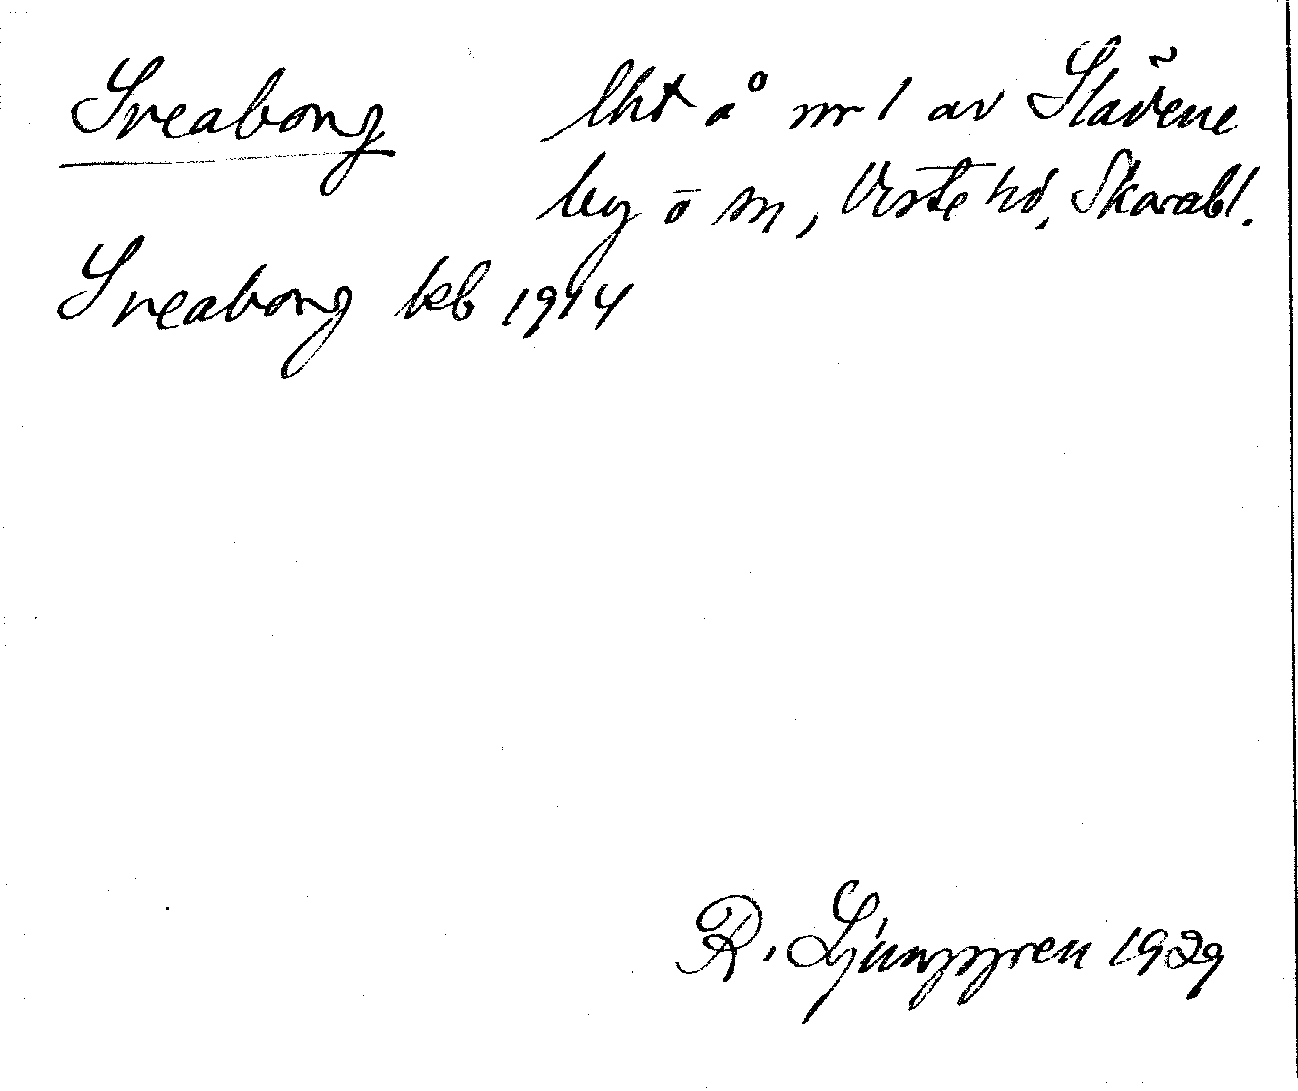 Sveaborg lht å nr 1 av Slävene
by o sn, Viste hd, Skarabl.
Sveaborg kb 1914
R. Ljunggren 1929